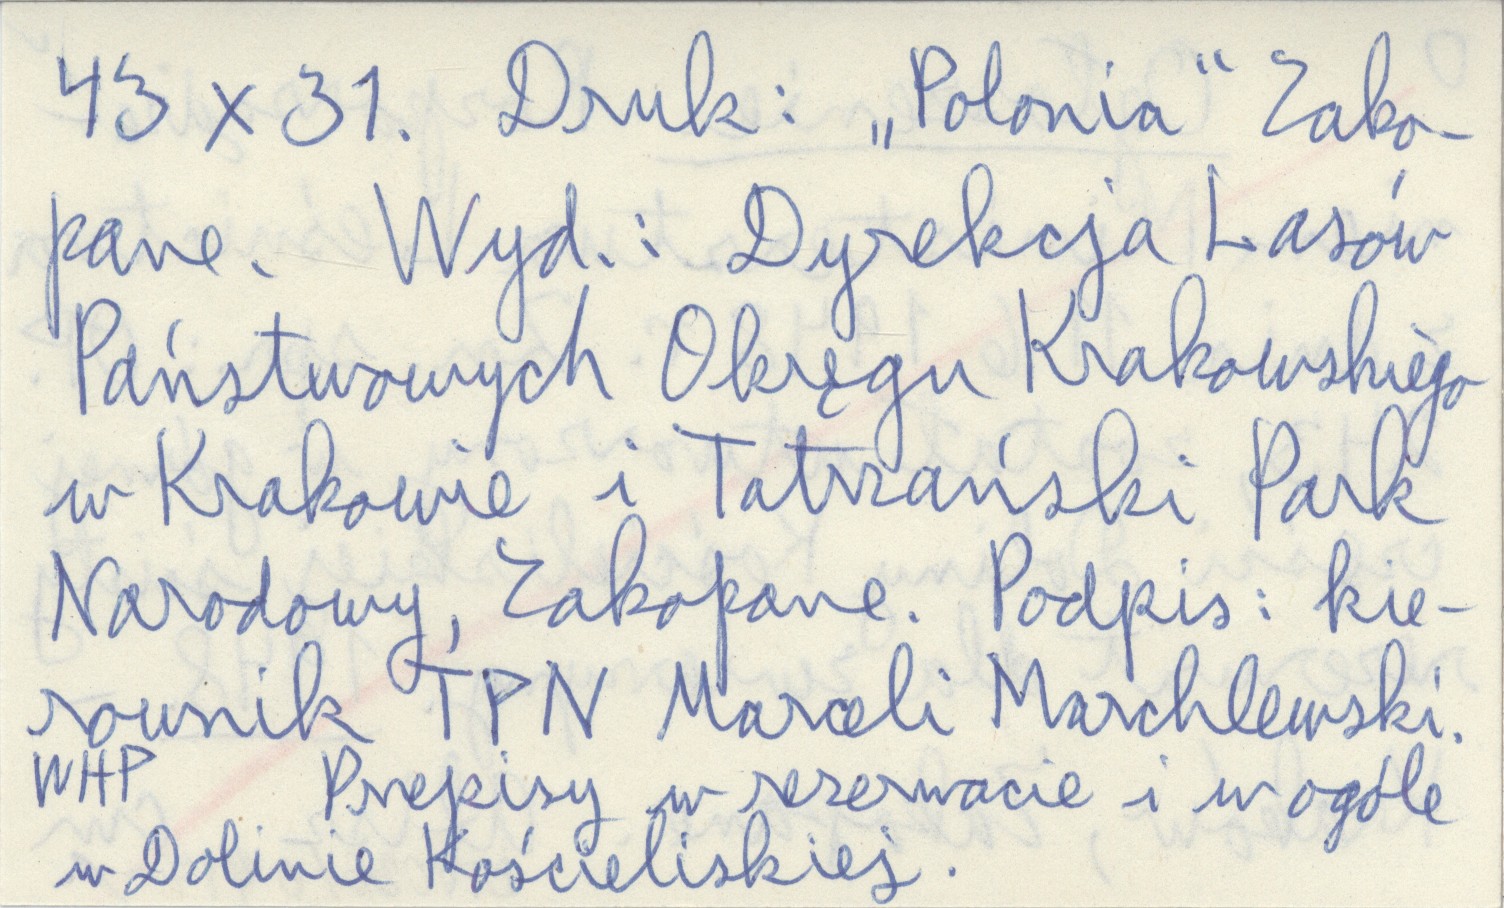 43 x 31. Druk: „Polonia" Zako-
pane. Wyd.: Dyrekcja Lasów
Państwowych Okręgu Krakowskiego
w Krakowie i Tatrzański Park
Narodowy, Zakopane. Podpis: kie-
rownik TPN Marceli Marchlewski.
WHP Przepisy w rezerwacie i w ogóle
w Dolinie Kościeliskiej.